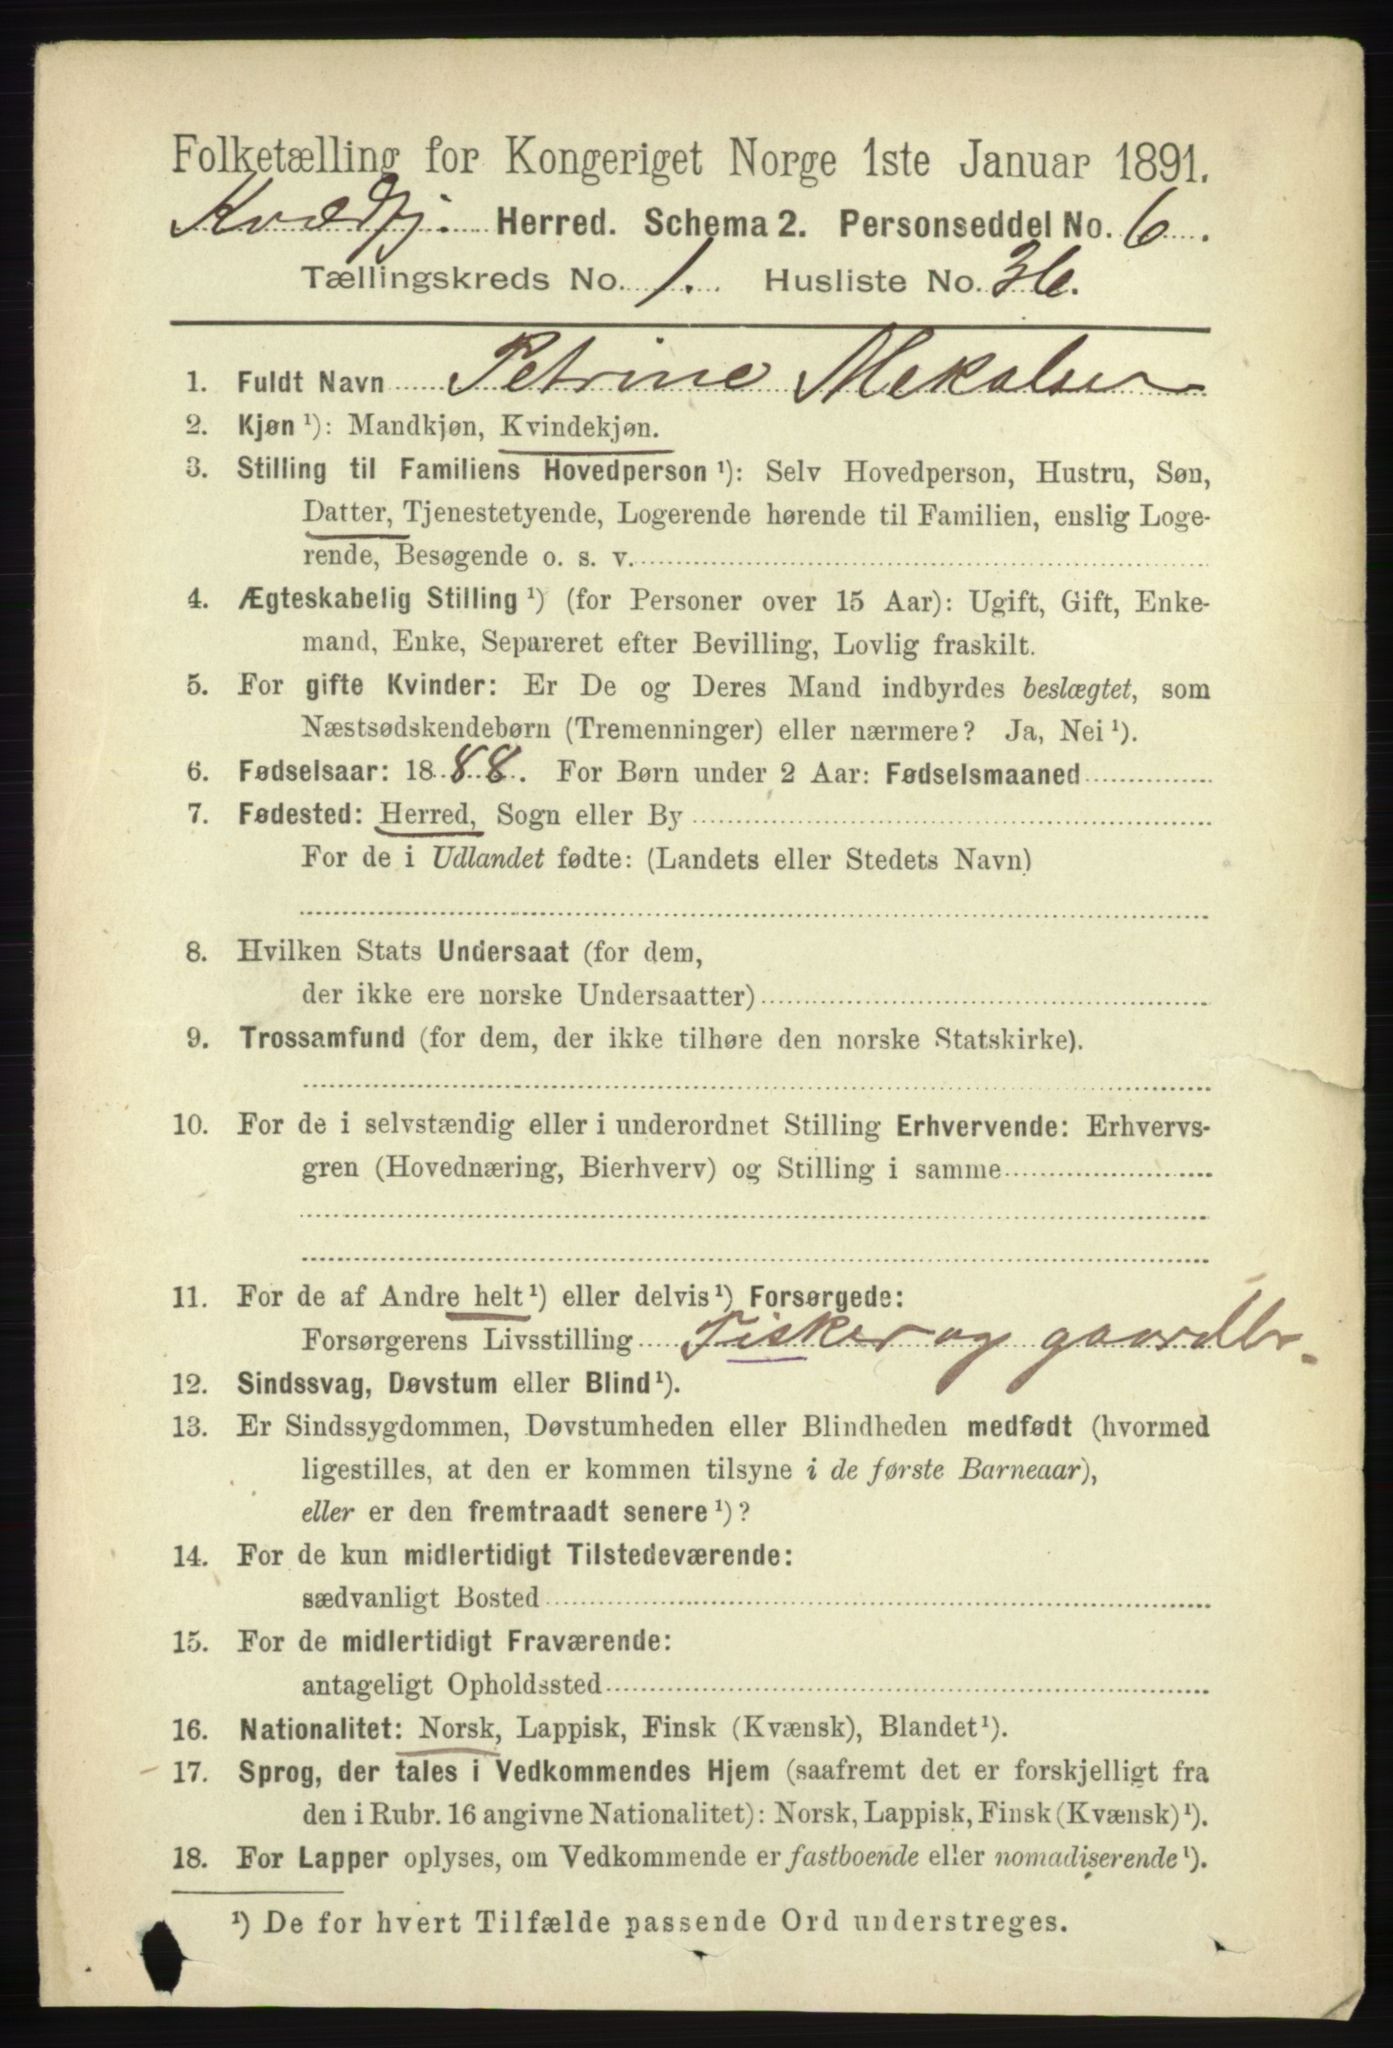 Folketælling for Kongeriget Norge 1ste Januar 1891.
Kvædfj. Herred. Schema 2. Personseddel No. 6.
Tællingskreds No. 1. Husliste No. 36.
1. Fuldt Navn Petrine Mekalsen
2. Kjøn ¹): Mandkjøn, Kvindekjøn.
3. Stilling til Familiens Hovedperson ¹): Selv Hovedperson, Hustru, Søn,
Datter, Tjenestetyende, Logerende hørende til Familien, enslig Loge-
rende, Besøgende o. s. v.
4. Ægteskabelig Stilling ¹) (for Personer over 15 Aar): Ugift, Gift, Enke-
mand, Enke, Separeret efter Bevilling, Lovlig fraskilt.
5. For gifte Kvinder: Er De og Deres Mand indbyrdes beslægtet, som
Næstsødskendebørn (Tremenninger) eller nærmere? Ja, Nei ¹).
6. Fødselsaar: 1888. For Børn under 2 Aar: Fødselsmaaned
7. Fødested: Herred, Sogn eller By
For de i Udlandet fødte: (Landets eller Stedets Navn)
8. Hvilken Stats Undersaat (for dem,
der ikke ere norske Undersaatter)
9. Trossamfund (for dem, der ikke tilhøre den norske Statskirke).
10. For de i selvstændig eller i underordnet Stilling Erhvervende: Erhvervs-
gren (Hovednæring, Bierhverv) og Stilling i samme
11. For de af Andre helt ¹) eller delvis ¹) Forsørgede:
Forsørgerens Livsstilling Fisker og gaardbr.
12. Sindssvag, Døvstum eller Blind ¹).
13. Er Sindssygdommen, Døvstumheden eller Blindheden medfødt (hvormed
ligestilles, at den er kommen tilsyne i de første Barneaar),
eller er den fremtraadt senere ¹)?
14. For de kun midlertidigt Tilstedeværende:
sædvanligt Bosted
15. For de midlertidigt Fraværende:
antageligt Opholdssted
16. Nationalitet: Norsk, Lappisk, Finsk (Kvænsk), Blandet ¹).
17. Sprog, der tales i Vedkommendes Hjem (saafremt det er forskjelligt fra
den i Rubr. 16 angivne Nationalitet): Norsk, Lappisk, Finsk (Kvænsk) ¹).
18. For Lapper oplyses, om Vedkommende er fastboende eller nomadiserende ¹).
¹) De for hvert Tilfælde passende Ord understreges.